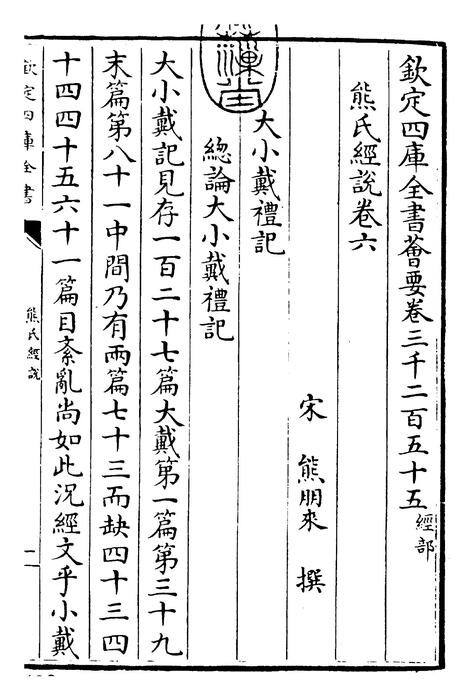 欽定四庫全書薈要卷三千二百五十五經部
熊氏經說卷六
宋 熊朋來 撰
大小戴禮記
總論大小戴禮記
大小戴記見存一百二十七篇大戴第一篇第三十九
末篇第八十一中間乃有兩篇七十三而缺四十三四
十四四十五六十一篇目紊亂尚如此況經文乎小戴
欽定四庫全書
熊氏經說
一